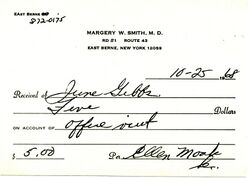 EAST BERNE
872-0175
MARGERY W. SMITH, M. D.
RD #1 ROUTE 43
EAST BERNE, NEW YORK 12059
10-25 1968
Received of June Gibbs
Five Dollars
ON ACCOUNT OF office visit
$ 5.00 Ellen Moak